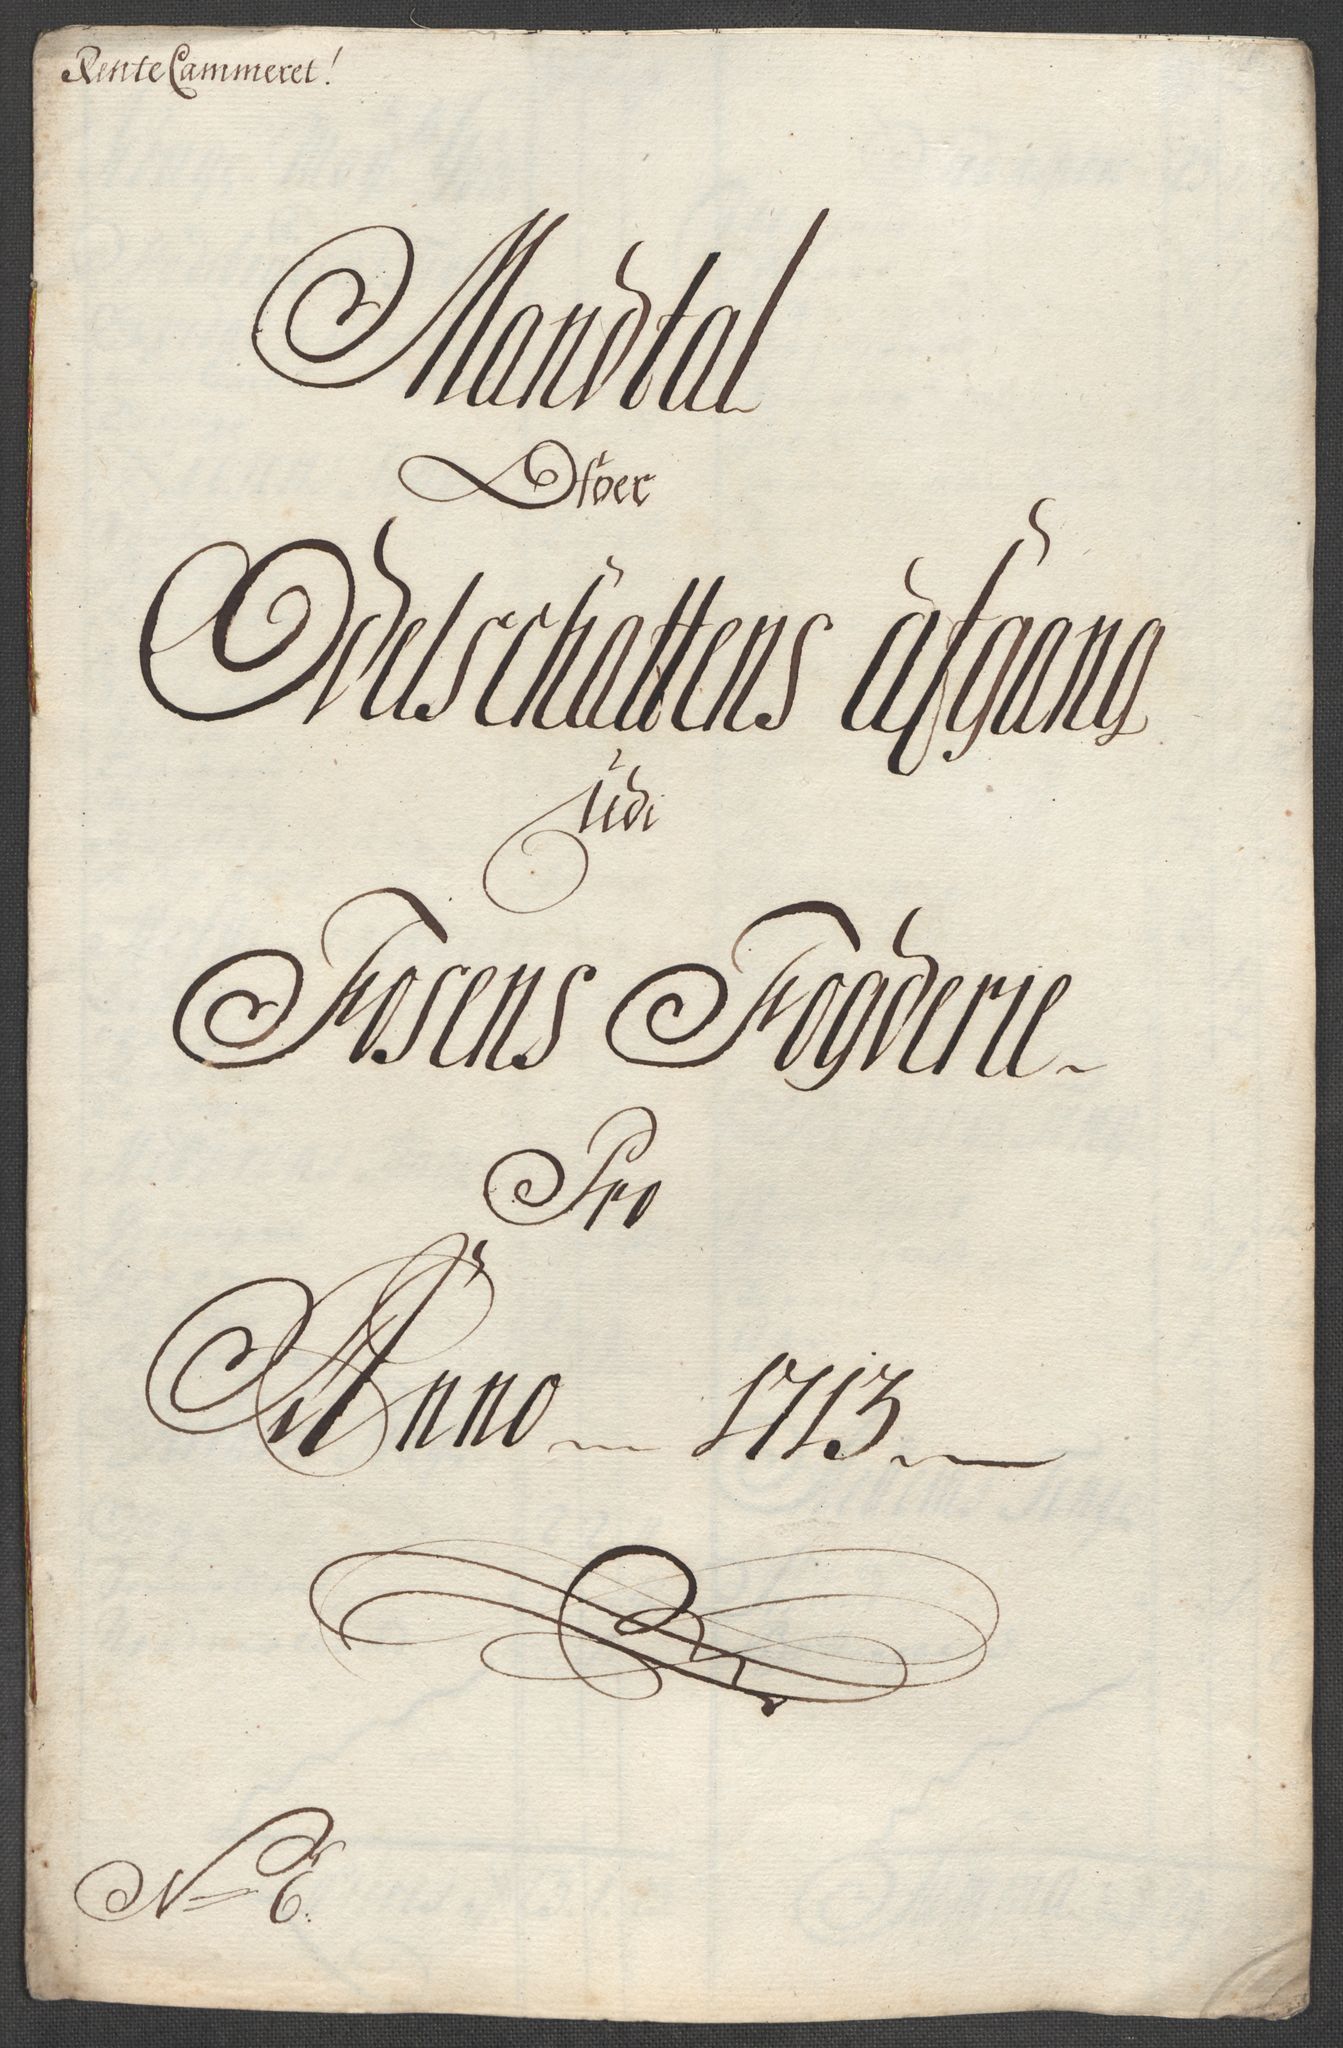 RenteCammeret!
Mandtal
Ofver
Odelschattens afgang
udi
Fosens Fogderie
Pro
Anno 1713
No E.